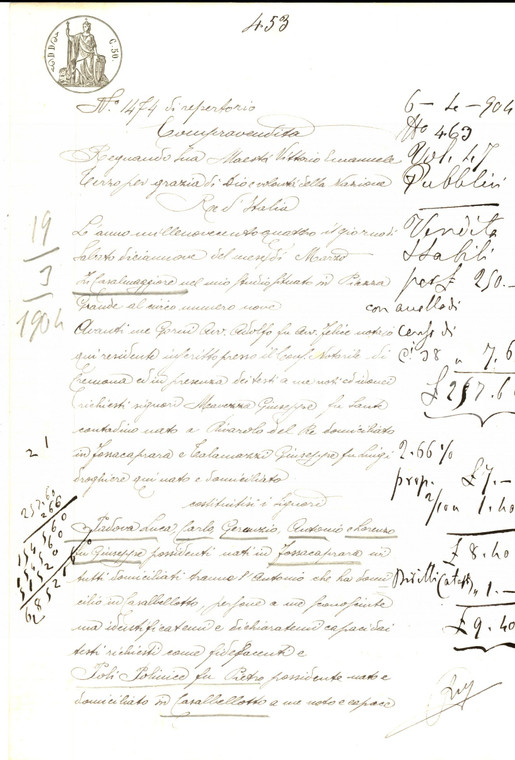 453
D.D.
C. 50.
N.° 1474 di repertorio
Compravendita
Regnando Sua Maestà Vittorio Emanuele
Terzo per grazia di Dio e volontà della Nazione
Re d'Italia
L'anno millenovecento quattro il giorno di
Sabato diciannove del mese di Marzo
In Casalmaggiore nel mio studio situato in Piazza
Grande al civico numero nove
Avanti me Avv. Adolfo fu Avv. Felice notajo
qui residente inscritto presso il Cons. Notarile di
Cremona ed in presenza dei testi a me noti ed idonei
richiesti signori Giuseppe fu Sante
contadino nato a Rivarolo del Re domiciliato
in Fossacaprara e Talamazzi Giuseppe fu Luigi
droghiere qui nato e domiciliato
costituitisi i signori
Padova Luca, Carlo, Antonio e Lorenzo
fu Giuseppe possidenti nati in Fossacaprara ed ivi
tutti domiciliati tranne l'Antonio che ha domi
cilio in Casalbellotto, persone a me sconosciute
ma identificatemi e dichiaratemi capaci dai
testi richiesti come fidefacenti e
Poli fu Pietro possidente nato e
domiciliato in Casalbellotto a me noto e capace
6 - 4 - 904
N° 463
Vol. 47
Pubblici
Vendita
Stabili
per £ 250.-
con anello di
censo di
C.i 38 " 7.6
£ 257.6
2.66 %
prop. £ 7.-
1.40
£ 8.40
" 1.-
£ 9.40
19
3
1904
2 1
257.60
266
154560
154560
51520